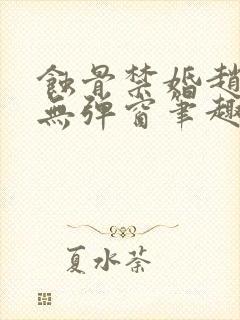 蝕骨禁婚趙
無彈窗筆趣
夏水荼